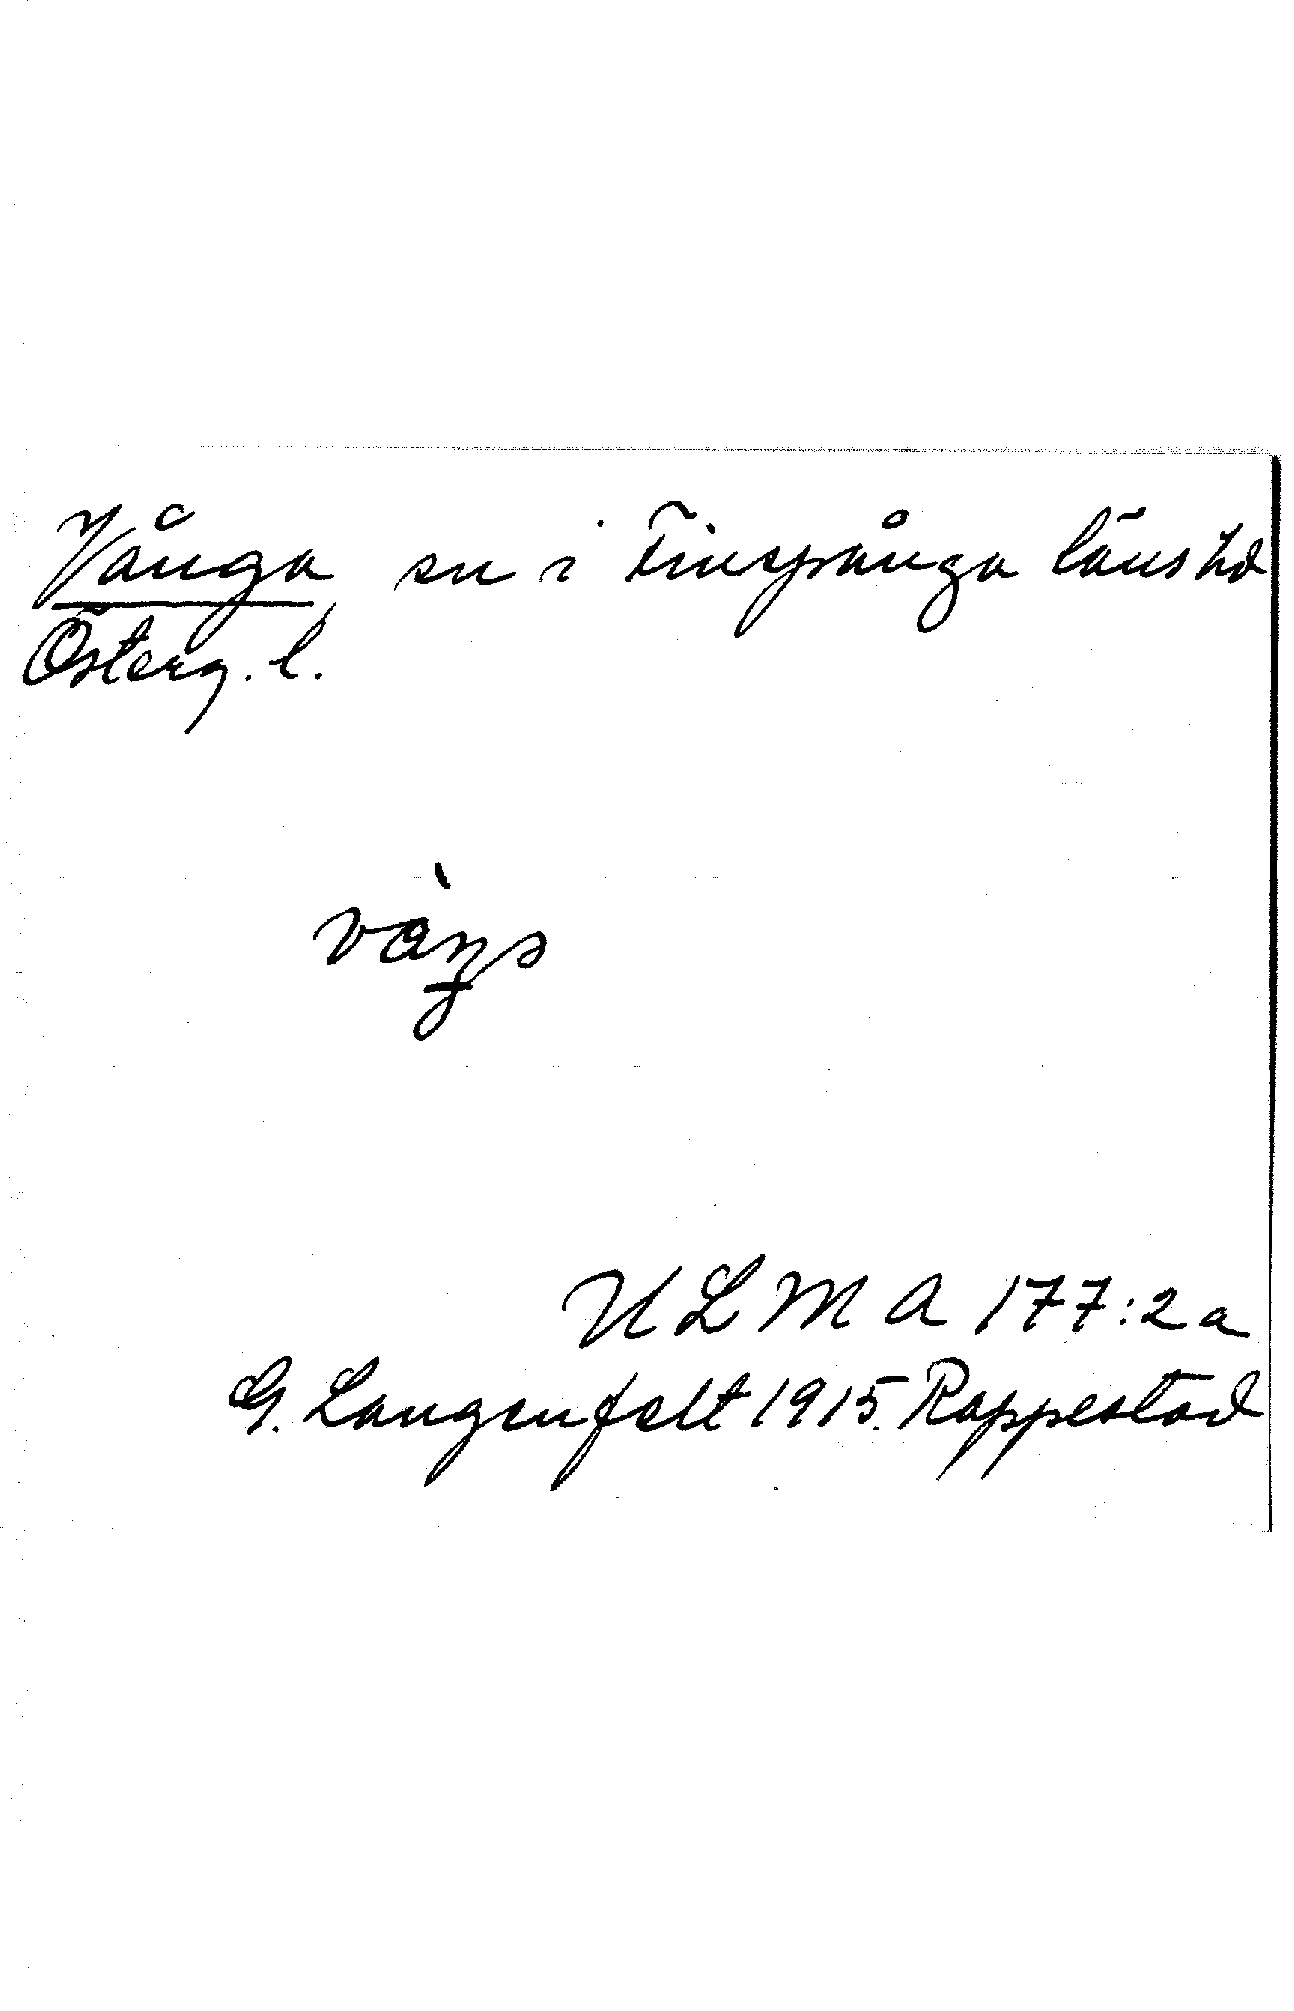 Vånga sn i Finspånga läns hd
Österg. l.
ULMA 177:2a
G. Langenfelt 1915. Rappestad